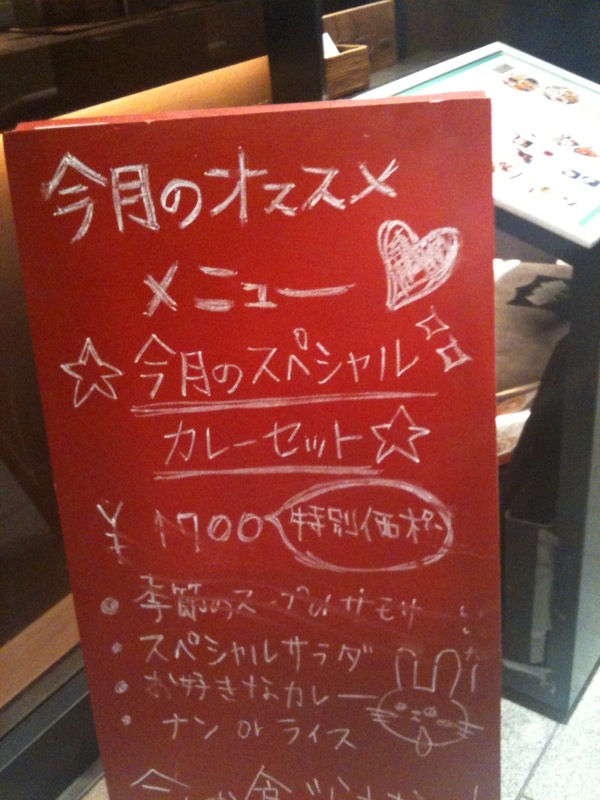 今月のオススメ
メニュー
☆今月のスペシャル
カレーセット☆
¥1700 特別価格
・季節のスープ or サモサ
・スペシャルサラダ
・お好きなカレー
・ナン or ライス